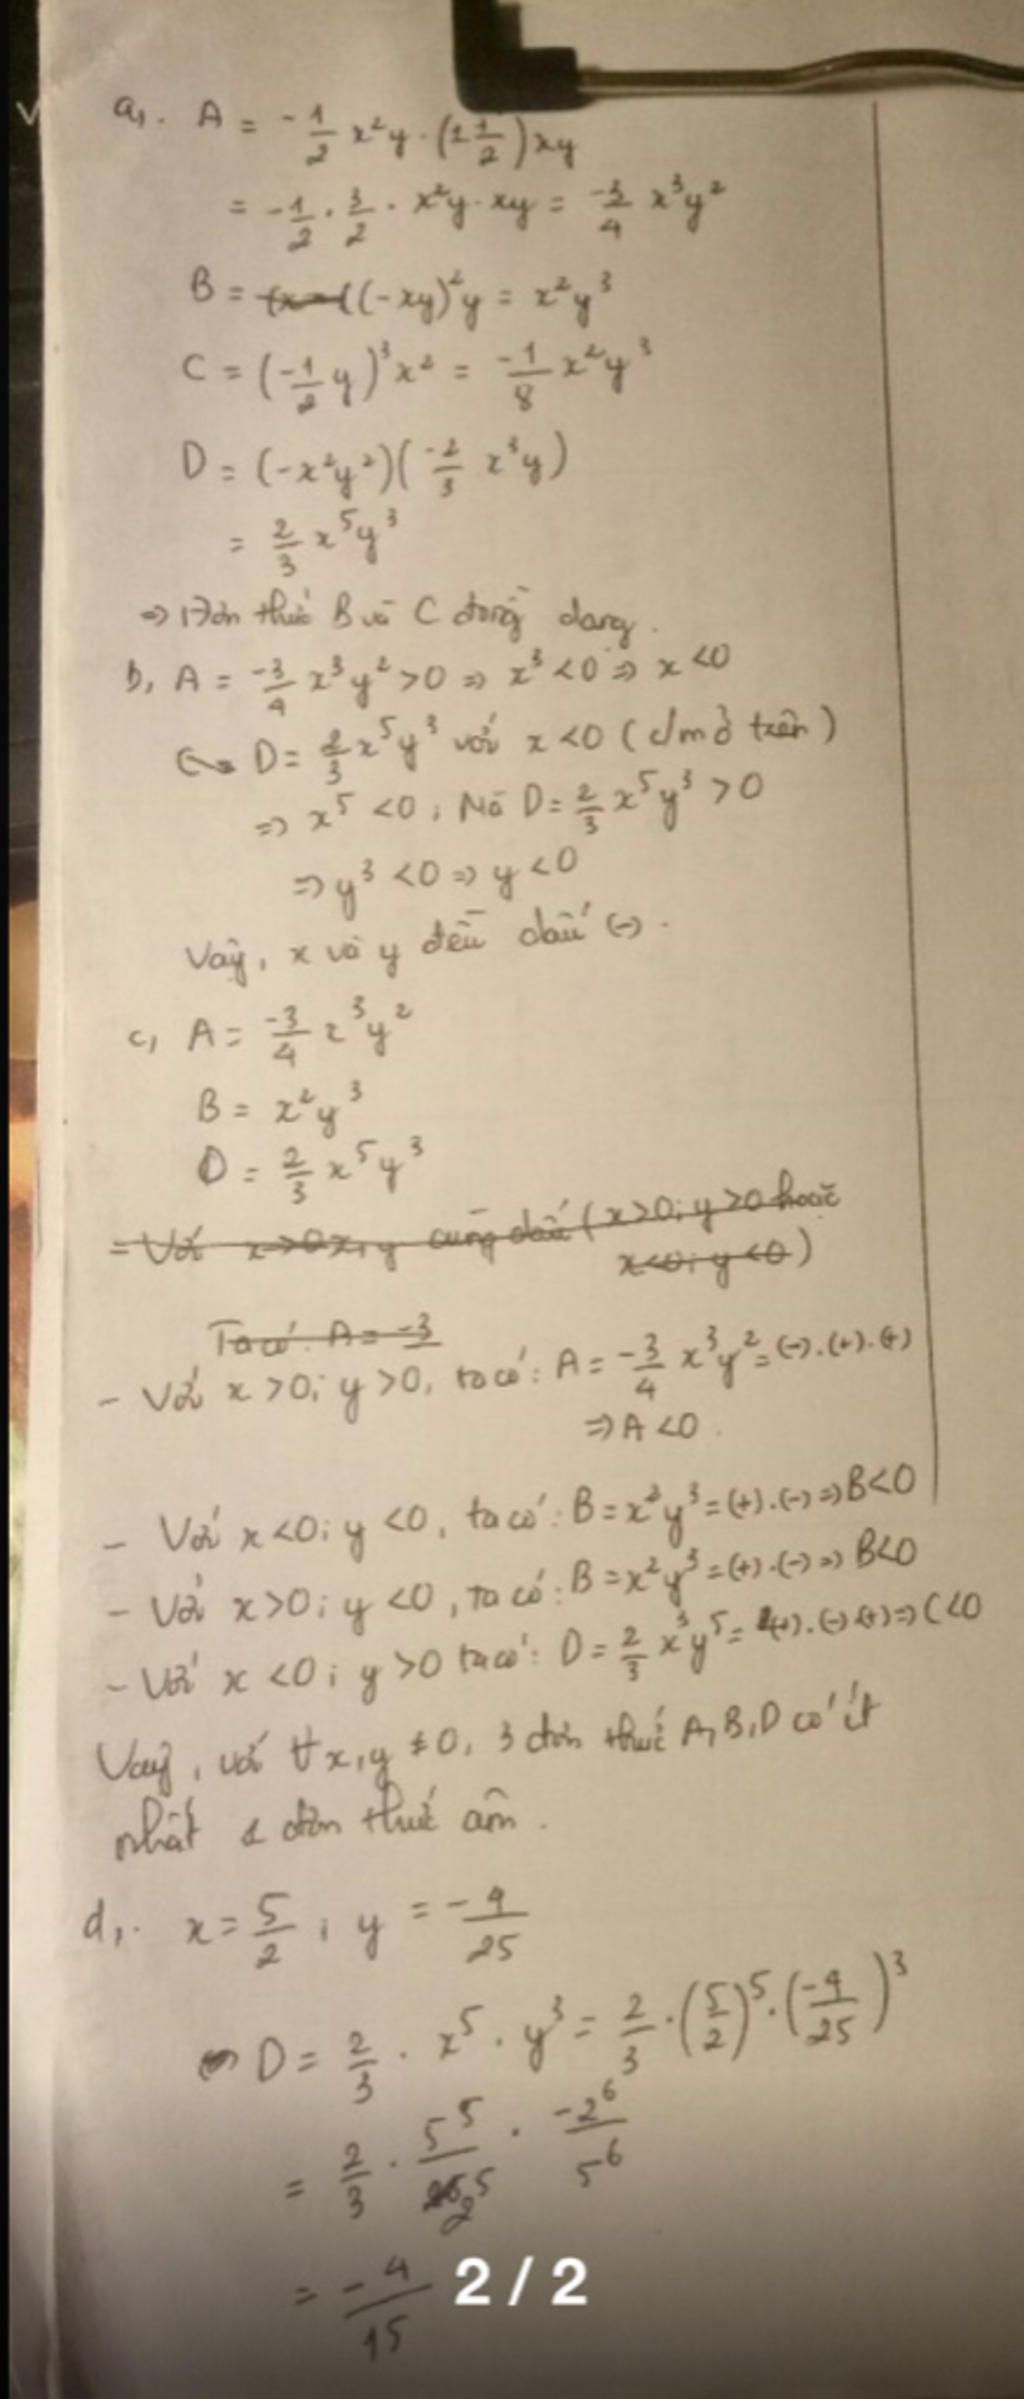 a,. A = -1/2 x²y . (1 1/2) xy
= -1/2 . 3/2 . x²y . xy = -3/4 x³y²
B = ((-xy)²y = x²y³
C = (-1/2 y)³x² = -1/8 x²y³
D = (-x²y²)(-2/3 x³y)
= 2/3 x⁵y³
=> Đơn thức B và C đồng dạng.
b, A = -3/4 x³y² > 0 => x³ < 0 => x < 0
D = 2/3 x⁵y³ với x < 0 (c/m ở trên)
=> x⁵ < 0 ; Mà D = 2/3 x⁵y³ > 0
=> y³ < 0 => y < 0
Vậy, x và y đều dấu (-).
c, A = -3/4 x³y²
B = x²y³
D = 2/3 x⁵y³
= Với x>0 x,y cùng dấu (x>0; y>0 hoặc
x<0; y<0)
Ta có: A = -3
- Với x > 0; y > 0, ta có: A = -3/4 x³y² = (-).(+).(+)
=> A < 0.
- Với x < 0; y < 0, ta có: B = x²y³ = (+).(-) => B < 0
- Với x > 0; y < 0, ta có: B = x²y³ = (+).(-) => B < 0
- Với x < 0; y > 0 ta có: D = 2/3 x³y⁵ = (+).(-).(+) => C < 0
Vậy, với ∀x,y ≠ 0, 3 đơn thức A,B,D có ít
nhất 1 đơn thức âm.
d,. x = 5/2 ; y = -4/25
D = 2/3 . x⁵ . y³ = 2/3 . (5/2)⁵ . (-4/25)³
= 2/3 . 5⁵/2⁵ . -2⁶/5⁶
= -4/15
2 / 2